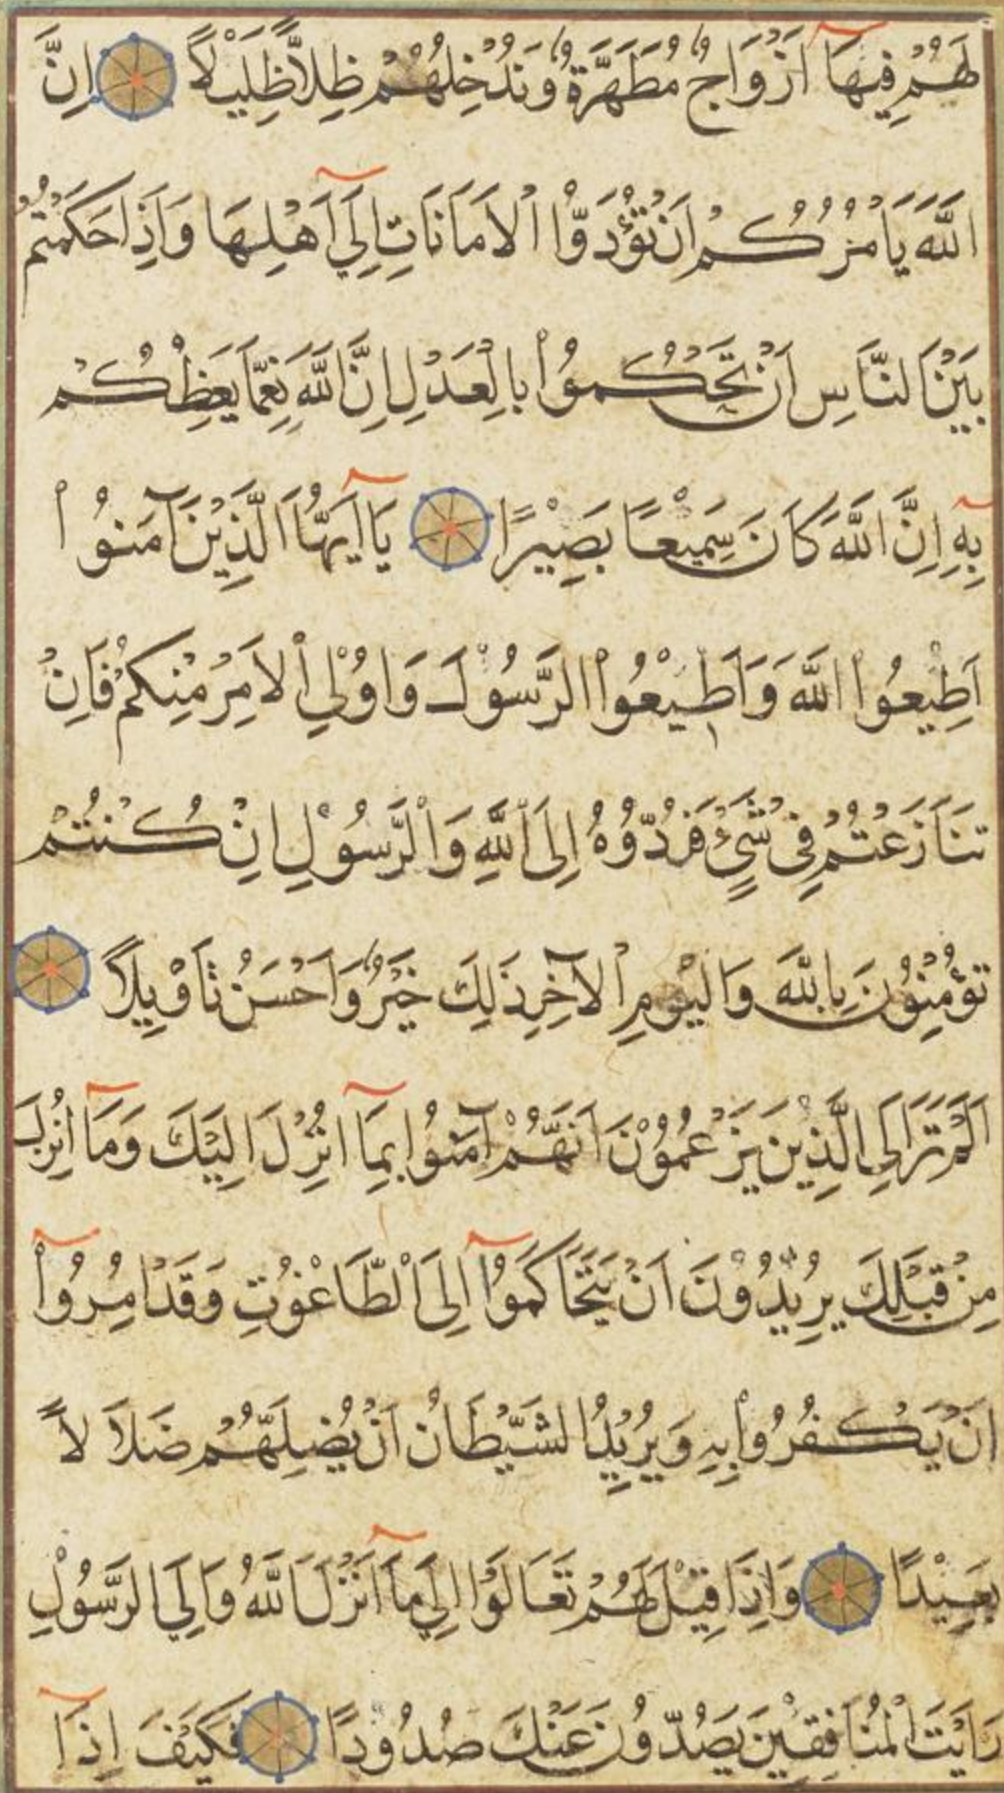 لَهُمْ فِيهَآ اَزْوَاجٌ مُطَهَّرَةٌ وَنُدْخِلُهُمْ ظِلاًّ ظَلِيْلاً اِنَّ
اللَّهَ يَاْمُرُكُمْ اَنْ تُؤَدُّوْا الْاَمَانَاتِ اِلَىٓ اَهْلِهَا وَاِذَا حَكَمْتُمْ
بَيْنَ النَّاسِ اَنْ تَحْكُمُوْا بِالْعَدْلِ اِنَّ اللَّهَ نِعِمَّا يَعِظُكُمْ
بِهِٓ اِنَّ اللَّهَ كَانَ سَمِيْعًا بَصِيْرًا يَآ اَيُّهَا الَّذِيْنَ آمَنُوْا
اَطِيْعُوا اللَّهَ وَاَطِيْعُوا الرَّسُوْلَ وَاُوْلِي الْاَمْرِ مِنْكُمْ فَاِنْ
تَنَازَعْتُمْ فِيْ شَيْءٍ فَرُدُّوْهُ اِلَى اللَّهِ وَالرَّسُوْلِ اِنْ كُنْتُمْ
تُؤْمِنُوْنَ بِاللَّهِ وَالْيَوْمِ الْآخِرِ ذَلِكَ خَيْرٌ وَاَحْسَنُ تَاْوِيْلاً
اَلَمْ تَرَ اِلَى الَّذِيْنَ يَزْعُمُوْنَ اَنَّهُمْ آمَنُوْا بِمَآ اُنْزِلَ اِلَيْكَ وَمَآ اُنْزِلَ
مِنْ قَبْلِكَ يُرِيْدُوْنَ اَنْ يَتَحَاكَمُوْٓا اِلَى الْطَّاغُوْتِ وَقَدْ اُمِرُوْٓا
اَنْ يَكْفُرُوْا بِهِ وَيُرِيْدُ الشَّيْطَانُ اَنْ يُضِلَّهُمْ ضَلاَلاً
بَعِيْدًا وَاِذَا قِيْلَ لَهُمْ تَعَالَوْا اِلَى مَآ اَنْزَلَ اللَّهُ وَاِلَى الرَّسُوْلِ
رَاَيْتَ الْمُنَافِقِيْنَ يَصُدُّوْنَ عَنْكَ صُدُوْدًا فَكَيْفَ اِذَآ